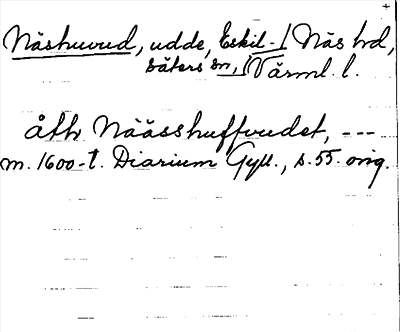 Näshuvud, udde, Eskil-| Näs hd,
säters sn, | Värml. l.
åth Näässhuffvudet, ---
m. 1600-t. Diarium Gyll., s. 55. orig.